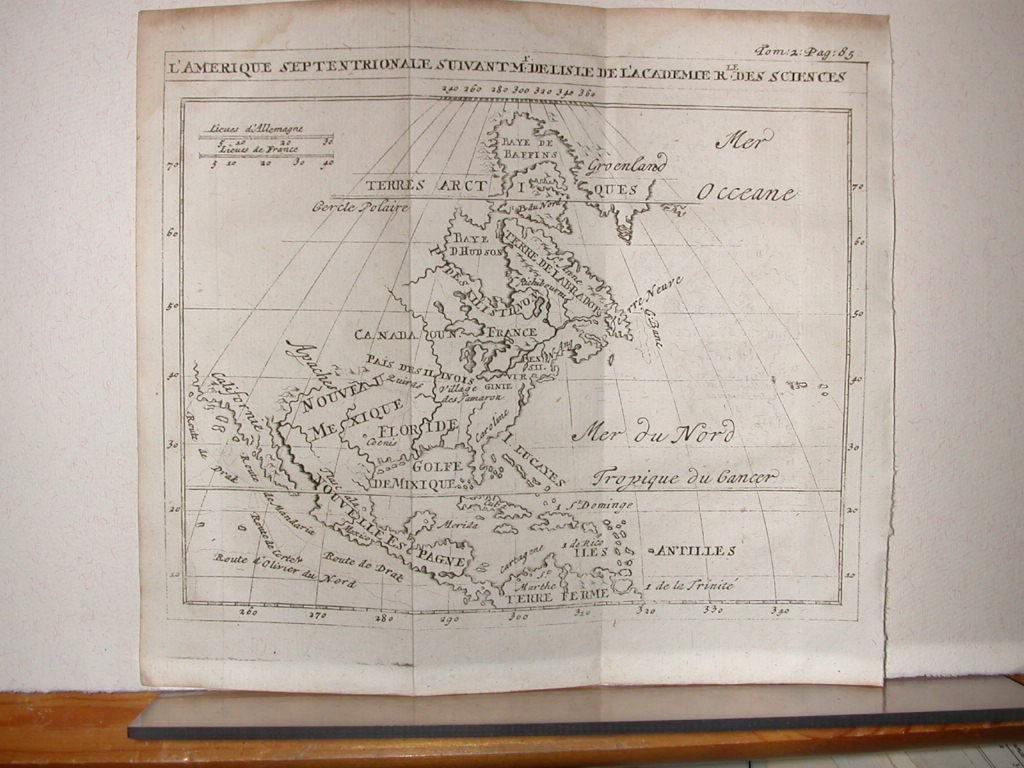 Tom: 2: Pag: 85
L'AMERIQUE SEPTENTRIONALE SUIVANT Mr. DE LISLE DE L'ACADEMIE RLE. DES SCIENCES
240 260 280 300 320 340 360
Lieues d'Allemagne
5 10 20 30
Lieues de France
5 10 20 30 40
BAYE DE
BAFFINS
Mer
Groenland
70
TERRES ARCTIQUES
Occeane
70
Cercle Polaire
B. du Nord
60
BAYE
D HUDSON
TERRE DE LABRADOR
60
Terre Neuve
G. Banc
50
CANADA OU N.
FRANCE
50
PAIS DES ILINOIS
VIR
GINIE
40
Apaches
NOUVEAU
MEXIQUE
Quiras
Village
des Tamaron
40
Californie
FLORIDE
Caroline
Coenis
Mer du Nord
30
Route de Drak
GOLFE
DE MIXIQUE
I LUCAYES
30
Tropique du Cancer
NOUVELLE ESPAGNE
Cuba
1 St. Dominge
20
Mexico
Merida
1 de Rico
ILES ANTILLES
20
Route de Cortes
Route de Drak
Route d'Olivier du Nord
Cartagene
Ste
Marthe
1 de la Trinité
10
TERRE FERME
10
260 270 280 290 300 310 320 330 340